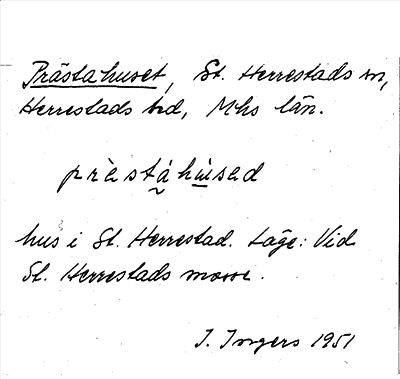 Prästahuset, St. Herrestads sn,
Herrestads hd, Mhs län.
prèstáhùsed
hus i St. Herrestad. Läge: Vid
St. Herrestads mosse.
I. Ingers 1951